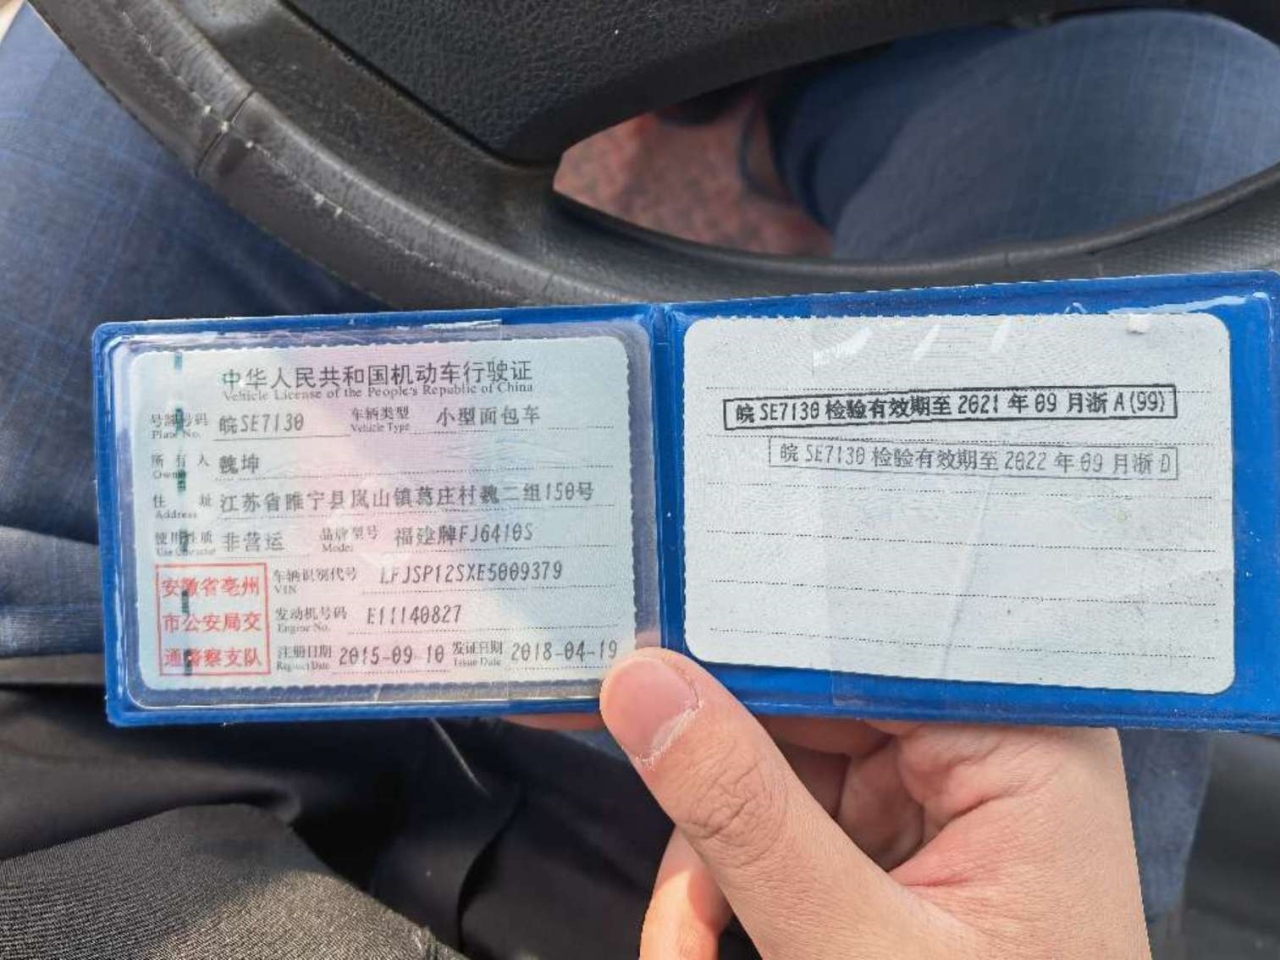 中华人民共和国机动车行驶证
Vehicle License of the People's Republic of China
号牌号码 皖SE7130 车辆类型 小型面包车
Plate No. Vehicle Type
所有人 魏坤
Owner
住址 江苏省睢宁县岚山镇葛庄村魏二组150号
Address
使用性质 非营运 品牌型号 福建牌FJ6410S
Use Character Model
车辆识别代号 LFJSP12SXE5009379
VIN
发动机号码 E11140827
Engine No.
注册日期 2015-09-10 发证日期 2018-04-19
Register Date Issue Date
安徽省亳州
市公安局交
通警察支队
皖SE7130检验有效期至2021年09月浙A(99)
皖SE7130检验有效期至2022年09月浙D